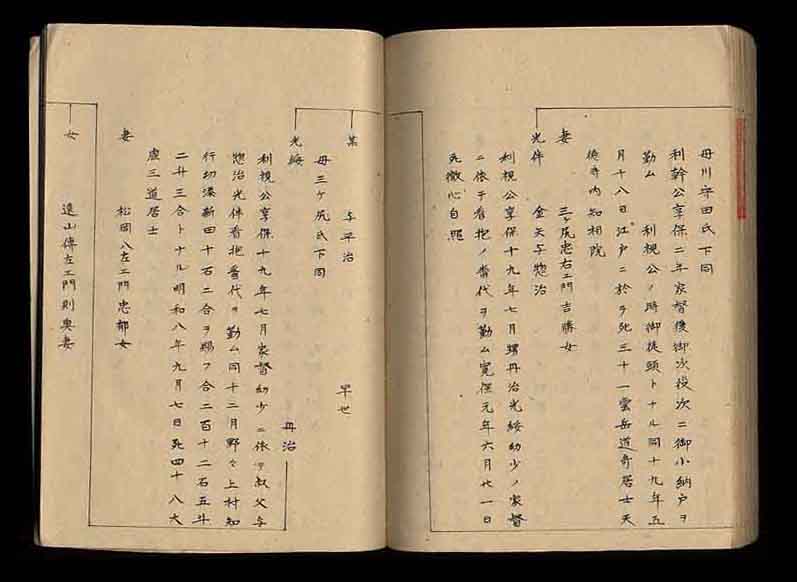 母川守田氏下同
利幹公享保二年家督後御次役次ニ御小納戸ヲ
勤ム　利視公ノ時御徒頭トナル同十九年五
月十八日江戸ニ於テ死三十一雲岳道奇居士天
徳寺内知相院
妻　三ヶ尻忠右エ門吉勝女
光伴　金矢与惣治
利視公享保十九年七月甥丹治光綏幼少ノ家督
ニ依テ看抱ノ當代ヲ勤ム寛保元年六月廿一日
死徹心自照
某　与平治　早世
母三ヶ尻氏下同
光綏　丹治
利視公享保十九年七月家督幼少ニ依テ叔父与
惣治光伴看抱當代ヲ勤ム同十二月野々上村知
行切添新田十石二合ヲ賜フ合二百十二石五斗
二升三合トナル明和八年九月七日死四十八大
虚三道居士
妻　松岡八左エ門忠郁女
女　遠山傳左エ門則奥妻